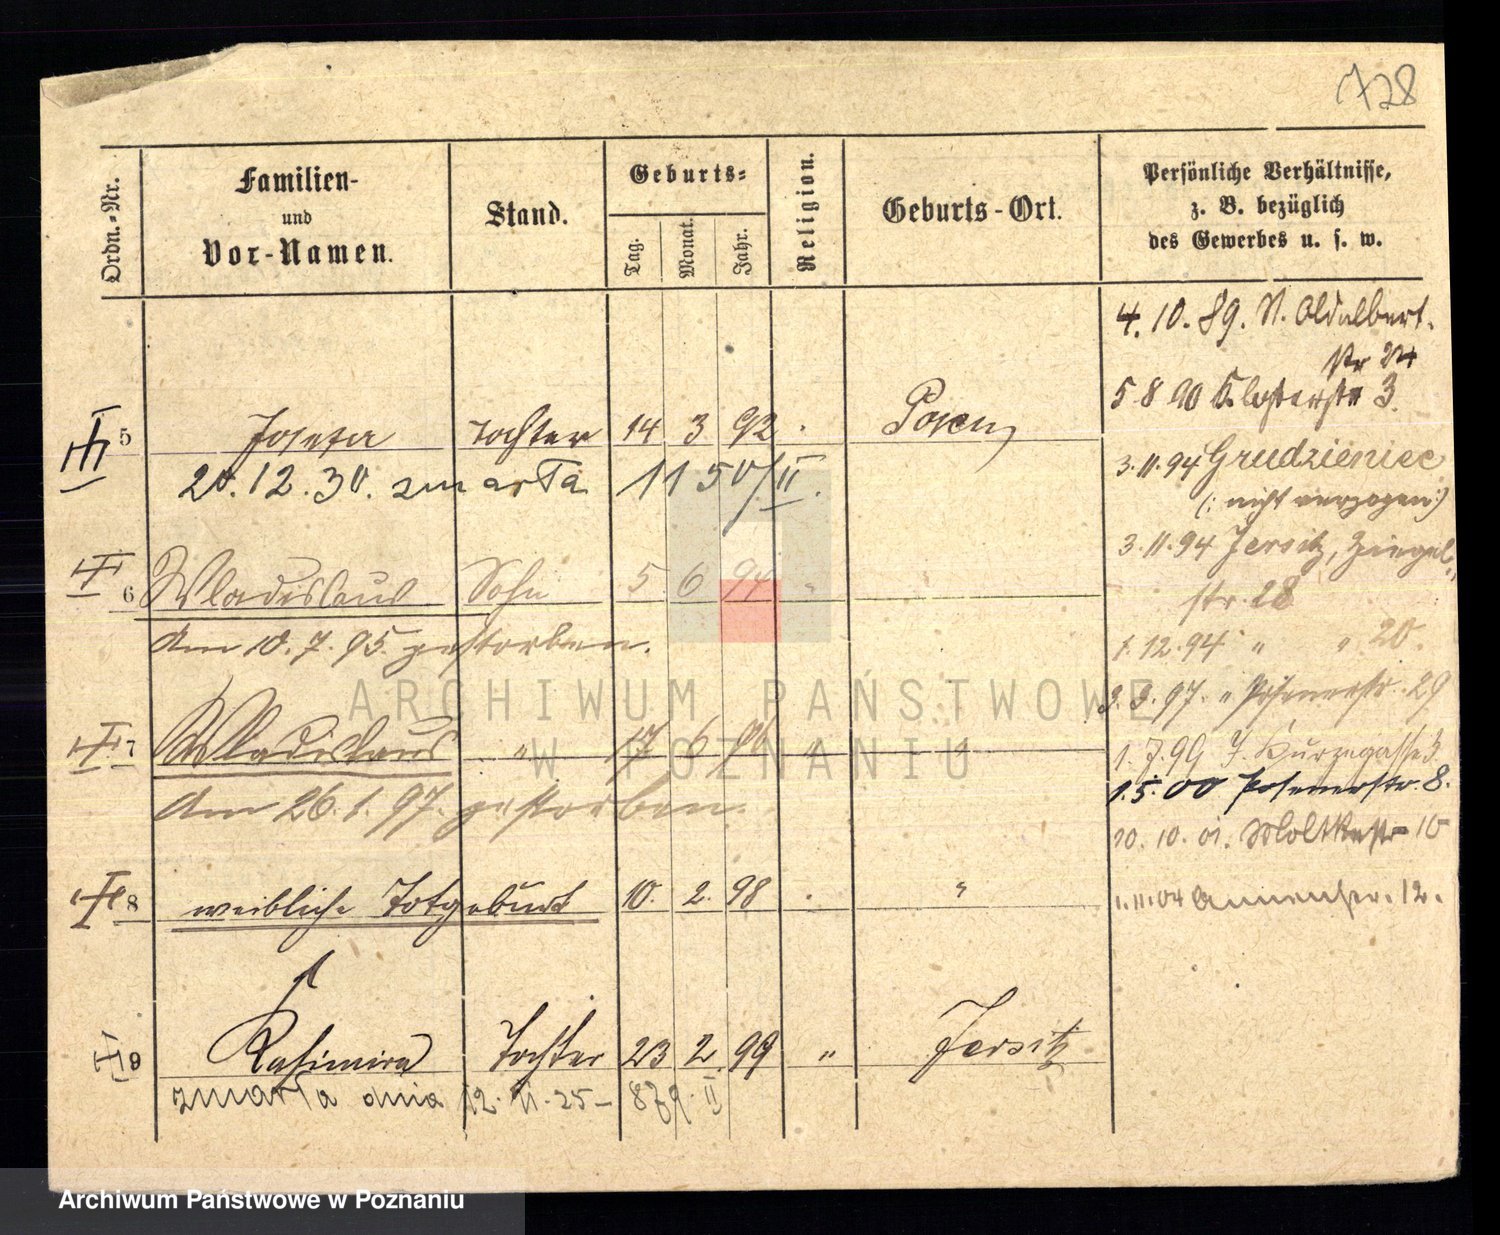 728
Ordn.-Nr.
Familien-
und
Vor-Namen.
Stand.
Geburts-
Tag.
Monat.
Jahr.
Religion.
Geburts-Ort.
Persönliche Verhältnisse,
z. B. bezüglich
des Gewerbes u. s. w.
4. 10. 89. St. Adalbert-
str 24
5 8 90 Klosterstr 3.
5 Josefa Tochter 14 3 92 Posen
3. 11. 94 Grudzieniec
20. 12. 30. zmarła 1150/II.
(: nicht verzogen :)
3. 11. 94 Jersitz, Ziegel-
6 Wladislaus Sohn 5 6 94 "
str. 28
Am 10. 7. 95. gestorben.
1. 12. 94 " " 20.
9. 9. 97. " Posenerstr. 29
7 Wladislaus " 17 6 96 " "
1. 7. 99 J. Kurzegasse 3
1. 5. 00 Posenerstr. 8.
Am 26. 1. 97. gestorben.
20. 10. 01. Moltkestr 10
8 weibliche Totgeburt 10. 2. 98 "
1. 11. 04 Annenstr. 12.
9 Kasimira Tochter 23 2. 99 " Jersitz
zmarła dnia 12. 11. 25 - 879. II
ARCHIWUM PAŃSTWOWE
W POZNANIU
Archiwum Państwowe w Poznaniu